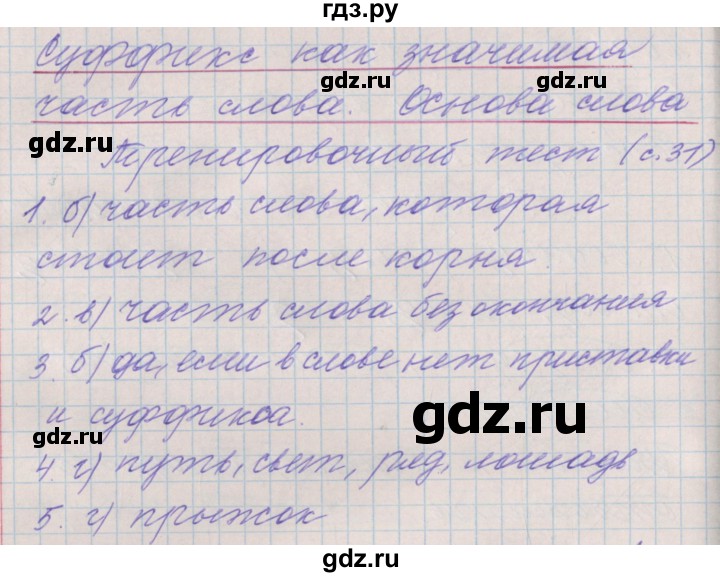 гдз.ру
Суффикс как значимая
gdz.ru
часть слова. Основа слова
gdz.ru
gdz.ru
Тренировочный тест (с.31)
1. б) часть слова, которая
стоит после корня.
2. в) часть слова без окончания
3. б) да, если в слове нет приставки
и суффикса.
gdz.ru
gdz.ru
4. г) путь, свет, ряд, лошадь
5. г) прыжок
gdz.ru
gdz.ru
gdz.ru